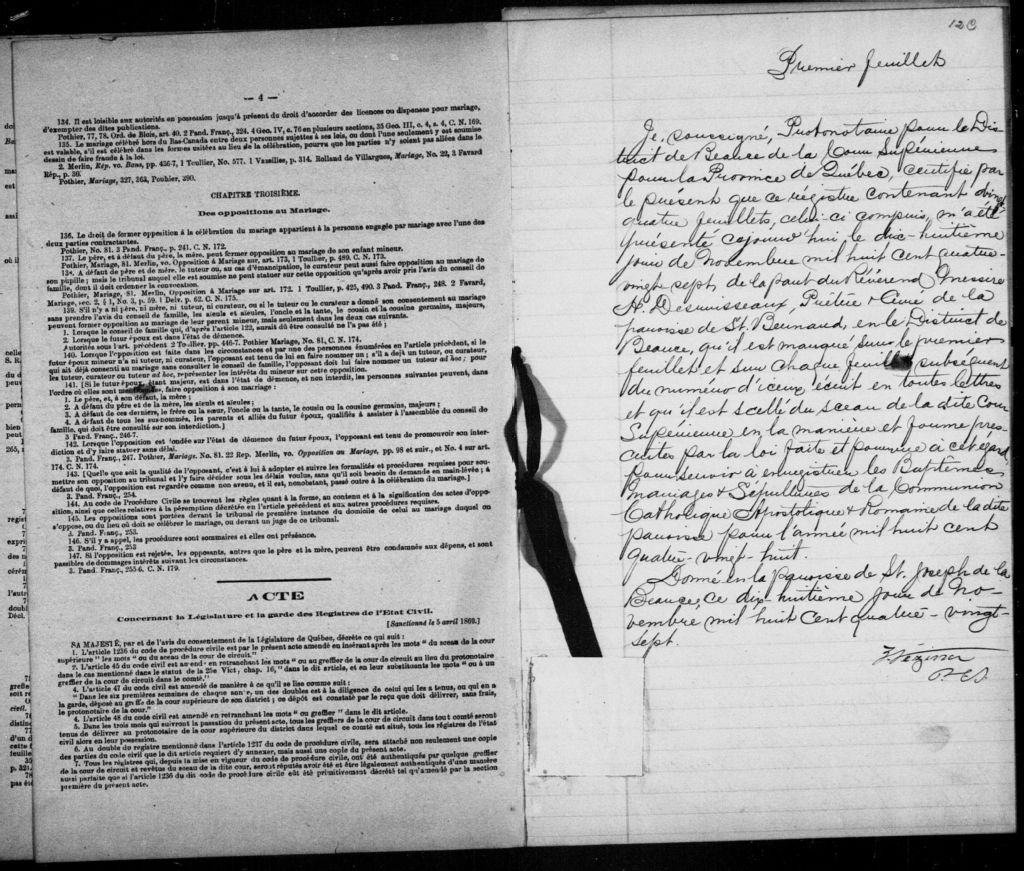 — 4 —
134. Il est loisible aux autorités en possession jusqu'à présent du droit d'accorder des licences ou dispenses pour mariage,
d'exempter des dites publications.
Pothier, 77, 78, Ord. de Blois, art. 40, 2 Pand. Franç., 324. 4 Geo. IV, c. 76 en plusieurs sections, 35 Geo. III, c. 4, s. 4, C. N. 169.
135. Le mariage célébré hors du Bas-Canada entre deux personnes sujettes à ses lois, ou dont l'une seulement y est soumise
est valable, s'il est célébré dans les formes usitées au lieu de la célébration, pourvu que les parties n'y soient pas allées dans le
dessin de faire fraude à la loi.
2. Merlin, Rép. vo. Bans, pp. 436-7, 1 Toullier, No. 577. 1 Vazeilles, p. 314. Rolland de Villargues, Mariage, No. 22, 3 Favard
Rép., p. 36.
Pothier, Mariage, 327, 263, Pouhier, 390.
CHAPITRE TROISIÈME.
Des oppositions au Mariage.
136. Le droit de former opposition à la célébration du mariage appartient à la personne engagée par mariage avec l'une des
deux parties contractantes.
Pothier, No. 81. 3 Pand. Franç., p. 241. C. N. 172.
137. Le père, et à défaut du père, la mère, peut former opposition au mariage de son enfant mineur.
Pothier, Mariage, 81. Merlin, vo. Opposition à Mariage sur art. 173, 1 Toullier, p. 489. C. N. 173.
138. A défaut de père et de mère, le tuteur ou, au cas d'émancipation, le curateur peut aussi faire opposition au mariage de
son pupille; mais le tribunal auquel elle est soumise ne peut statuer sur cette opposition qu'après avoir pris l'avis du conseil de
famille, dont il doit ordonner la convocation.
Pothier, Mariage, 81. Merlin, Opposition à Mariage sur art. 172. 1 Toullier, p. 425, 490. 3 Pand. Franç., 248. 2 Favard,
Mariage, sec. 2, § 1, No. 3, p. 59. 1 Delv. p. 62. C. N. 175.
139. S'il n'y a ni père, ni mère, ni tuteur, ni curateur, ou si le tuteur ou le curateur a donné son consentement au mariage
sans prendre l'avis du conseil de famille, les aïeuls et aïeules, l'oncle et la tante, le cousin et la cousine germains, majeurs,
peuvent former opposition au mariage de leur parent mineur, mais seulement dans les deux cas suivants.
1. Lorsque le conseil de famille qui, d'après l'article 122, aurait dû être consulté ne l'a pas été;
2. Lorsque le futur époux est dans l'état de démence.
Autorités sous l'art. précédent. 2 Toullier, pp. 446-7. Pothier Mariage, No. 81. C. N. 174.
140. Lorsque l'opposition est faite dans les circonstances et par une des personnes énumérées en l'article précédent, si le
futur époux mineur n'a ni tuteur, ni curateur, l'opposant est tenu de lui en faire nommer un; s'il a déjà un tuteur, ou curateur,
qui ait déjà consenti au mariage sans consulter le conseil de famille, l'opposant doit lui faire nommer un tuteur ad hoc; pour
les tuteur, curateur ou tuteur ad hoc, représenter les intérêts du mineur sur cette opposition.
141. [Si le futur époux, étant majeur, est dans l'état de démence, et non interdit, les personnes suivantes peuvent, dans
l'ordre où elles sont mentionnées, faire opposition à son marriage:
1. Le père, et, à son défaut, la mère;
2. A défaut du père et de la mère, les aïeuls et aïeules;
3. A défaut de ces derniers, le frère ou la sœur, l'oncle ou la tante, le cousin ou la cousine germains, majeurs;
4. A défaut de tous les sus-nommés, les parents et alliés du futur époux, qualifiés à assister à l'assemblée du conseil de
famille, qui doit être consulté sur son interdiction.]
3 Pand. Franç., 246-7.
142. Lorsque l'opposition est fondée sur l'état de démence du futur époux, l'opposant est tenu de promouvoir son inter-
diction et d'y faire statuer sans délai.
3. Pand. Franç., 247. Pothier, Mariage, No. 81. 22 Rep. Merlin, vo. Opposition au Mariage, pp. 98 et suiv., et No. 4 sur art.
174. C. N. 174.
143. [Quelle que soit la qualité de l'opposant, c'est à lui à adopter et suivre les formalités et procédures requises pour sou-
mettre son opposition au tribunal et l'y faire décider sous les délais voulus, sans qu'il soit besoin de demande en main-levée; à
défaut de quoi, l'opposition est regardée comme non avenu, et il est, nonobstant, passé outre à la célébration du mariage.]
3. Pand. Franç., 254.
144. Au code de Procédure Civile se trouvent les règles quant à la forme, au contenu et à la signification des actes d'oppo-
sition, ainsi que celles relatives à la péremption décrétée en l'article précédent et aux autres procédures requises.
145. Les oppositions sont portées devant le tribunal de première instance du domicile de celui au mariage duquel on
s'oppose, ou du lieu où doit se célébrer le mariage, ou devant un juge de ce tribunal.
3. Pand. Franç., 253.
146. S'il y a appel, les procédures sont sommaires et elles ont préséance.
3. Pand. Franç., 253
147. Si l'opposition est rejetée, les opposants, autres que le père et la mère, peuvent être condamnés aux dépens, et sont
passibles de dommages intérêts suivant les circonstances.
3. Pand. Franç., 255-6. C. N. 179.
ACTE
Concernant la Législature et la garde des Registres de l'Etat Civil.
[Sanctionné le 5 avril 1869.]
SA MAJESTÉ, par et de l'avis du consentement de la Législature de Québec, décrète ce qui suit:
1. L'article 1236 du code de procédure civile est par le présent acte amendé en insérant après les mots "du sceau de la cour
supérieure" les mots "ou du sceau de la cour de circuit."
2. L'article 45 du code civil est amendé en retranchant les mots "ou au greffier de la cour de circuit au lieu du protonotaire
dans le cas mentionné dans le statut de la 25e Vict, chap. 16," dans le dit article, et en leur substituant les mots "ou à un
greffier de la cour de circuit dans le comté."
4. L'article 47 du code civil est amendé de manière à ce qu'il se lise comme suit:
"Dans les six premières semaines de chaque année, un des doubles est à la diligence de celui qui les a tenus, ou qui en a
la garde, déposé au greffe de la cour supérieure de son district; ce dépôt est constaté par le reçu que doit délivrer, sans frais,
le protonotaire de la cour."
4. L'article 48 du code civil est amendé en retranchant les mots "ou greffier" dans le dit article.
5. Dans les trois mois qui suivront la passation du présent acte, tous les greffiers de la cour de circuit dans tout comté seront
tenus de délivrer au protonotaire de la cour supérieure du district dans lequel ce comté est situé, tous les régistres de l'état
civil alors en leur possession.
6. Au double du registre mentionné dans l'article 1237 du code de procédure civile, sera attaché non seulement une copie
des parties du code civil que le dit article requiert d'y annexer, mais aussi une copie du présent acte.
7. Tous les régistres qui, depuis la mise en vigueur du code de procédure civile, ont été authentiqués par quelque greffier
de la cour de circuit et revêtus du sceau de la dite cour, seront réputés avoir été et être légalement authentiqués d'une manière
aussi parfaite que si l'article 1236 du dit code de procédure civile eût été primitivement décrété tel qu'amendé par la section
première du présent acte.
Premier feuillet
Je, soussigné, Protonotaire pour le Dis-
trict de Beauce de la Cour Supérieure
pour la Province de Québec, certifie par
le présent que ce régistre contenant vingt
quatre feuillets, celui-ci compris, m'a été
présenté cejourd'hui le dix-huitième
jour de Novembre mil huit cent quatre-
vingt sept, de la part du Révérend Messire
A. Desruisseaux, Prêtre & Curé de la
paroisse de St. Bernard, en le District de
Beauce, qu'il est marqué sur le premier
feuillet et sur chaque feuillet subséquent
du numéro d'iceux, écrit en toutes lettres
et qu'il est scellé du sceau de la dite Cour
Supérieure en la manière et forme pres-
crites par la loi faite et pourvue à cet égard
pour servir à enregistrer les Baptêmes
Mariages & Sépultures de la Communion
Catholique Apostolique & Romaine de la dite
paroisse pour l'année mil huit cent
quatre-vingt-huit.
Donné en la paroisse de St. Joseph de la
Beauce, ce dix-huitième jour de No-
vembre mil huit cent quatre-vingt-
sept.